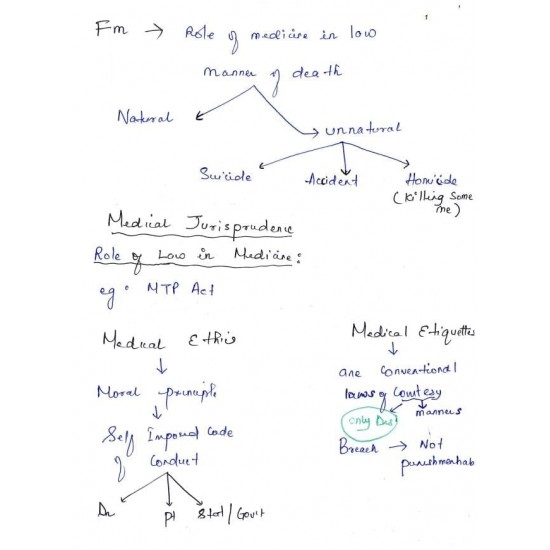 Fm → Role of medicine in low
manner of death
Natural
unnatural
Suicide Accident Homicide
(killing some
me)
Medical Jurisprudenc
Role of Low in Medicine:
eg: MTP Act
Medical Ethis
↓
Moral principle
↓
Self Imposed Code
of Conduct
Dr Pt State/Govt
Medical Etiquettes
↓
are Conventional
laws of Courtesy
only Drs manners
Breach → Not
punishmenhab